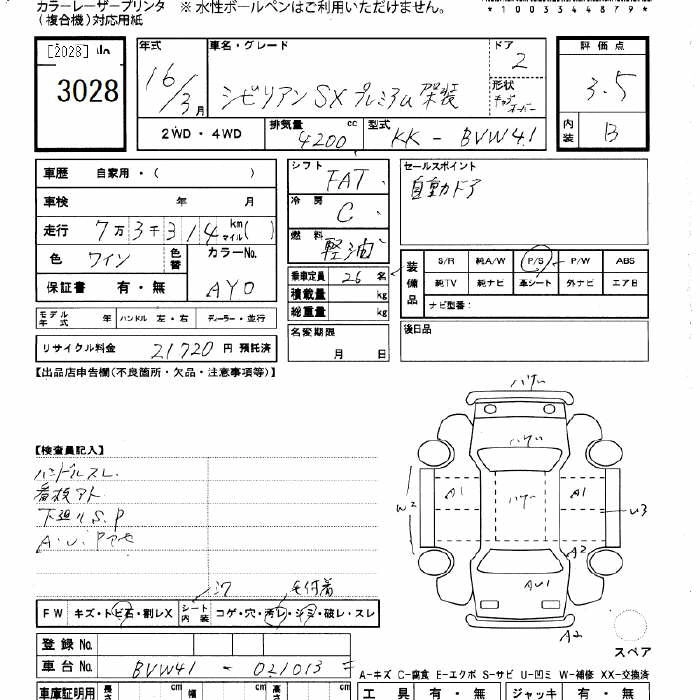 カラーレーザープリンタ ※ 水性ボールペンはご利用いただけません。
(複合機)対応用紙
*1003344879*
[2028]
3028
年式
16/3月
車名・グレード
シビリアンSXプレミアム架装
ドア
2
形状
キャブオーバー
評価点
3.5
内装
B
2WD・4WD
排気量
4200 cc
型式
KK - BVW41
車歴 自家用・( )
車検 年 月
走行 7万3千314 km マイル( )
色 ワイン
色替
カラーNo.
AY0
保証書 有・無
モデル年式 年
ハンドル 左・右
ディーラー・並行
リサイクル料金 21720 円 預託済
シフト
FAT
冷房
C
燃料
軽油
乗車定員 26 名
積載量 kg
総重量 kg
名変期限
月 日
セールスポイント
自動ドア
装備品
S/R 純A/W P/S P/W ABS
純TV 純ナビ 革シート 外ナビ エアB
ナビ型番:
後日品
【出品店申告欄(不良箇所・欠品・注意事項等)】
【検査員記入】
ハンドルスレ.
看板アト
下廻りS.P
ハゲ
ハゲ
ハゲ
A1
A1
W2
U3
A2
AU1
A2
スペア
毛付着
FW キズ・トビ石・割レX
シート内装
コゲ・穴・汚レ・シミ・破レ・スレ
登録 No.
車台 No. BVW41 - 021013
A-キズ C-腐食 E-エクボ S-サビ U-凹ミ W-補修 XX-交換済
車庫証明用
長さ cm 幅 cm 高さ cm
工具 有・無
ジャッキ 有・無